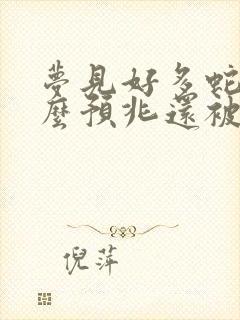 夢見好多蛇
麼預兆還被
倪萍